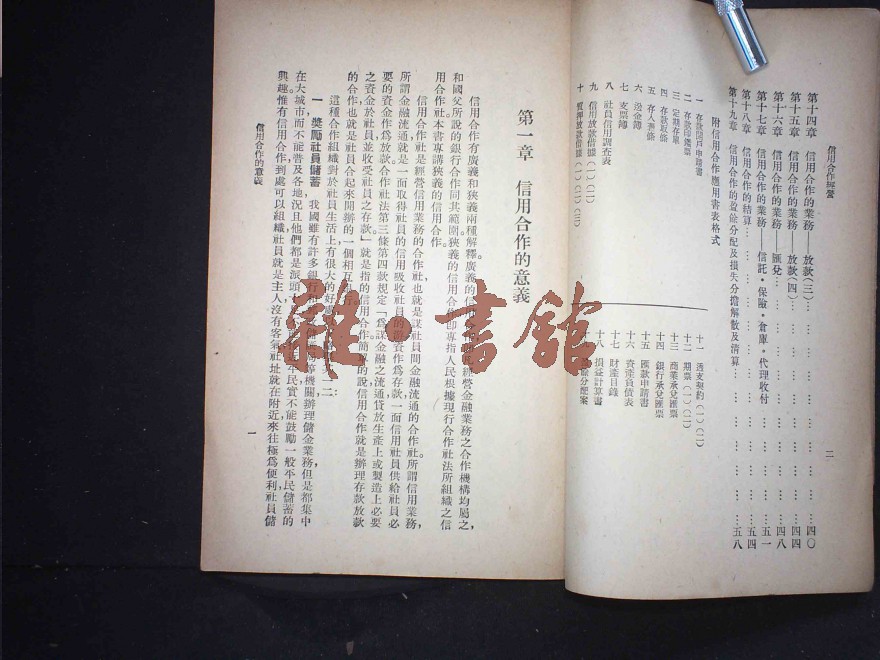 信用合作經營
二
第十四章　信用合作的業務——放款(三)……四〇
第十五章　信用合作的業務——放款(四)……四四
第十六章　信用合作的業務——匯兌……四八
第十七章　信用合作的業務——信託・保險・倉庫・代理收付……五一
第十八章　信用合作的結算……五四
第十九章　信用合作的盈餘分配及損失分擔解散及清算……五八
附信用合作應用書表格式
一　存款開戶申請書
二　存款印鑑票
三　定期存單
四　存款取條
五　存入憑條
六　送金簿
七　支票簿
八　社員信用調查表
九　信用放款借據(一)(二)
十　質押放款借據(一)(二)(三)
十一　透支契約(一)(二)
十二　期票(一)(二)
十三　商業承兌匯票
十四　銀行承兌匯票
十五　匯款申請書
十六　資產負債表
十七　財產目錄
十八　損益計算書
盈餘分配案
第一章　信用合作的意義
信用合作有廣義和狹義兩種解釋。廣義的信用合作經營金融業務之合作機構均屬之，
和國父所說的銀行合作同其範圍。狹義的信用合作即專指人民根據現行合作社法所組織之信
用合作社。本書專講狹義的信用合作。
信用合作社是經營信用業務的合作社，也就是謀社員間金融流通的合作社。所謂信用業務，
所謂金融流通，就是一面取得社員的信用吸收社員的資作爲存款，一面信用社員供給社員必
要的資金作爲放款。合作社法第三條第四款規定「爲謀金融之流通貸放生產上或製造上必要
之資金於社員並收受社員之存款」就是指的信用合作。簡單的說信用合作就是辦理存款放款
的合作，也就是社員合起來開辦的一個相互
這種合作組織對於社員生活上有很大的好處
一　獎勵社員儲蓄　我國雖有許多銀行和等機關辦理儲金業務，但是都集中
在大城市而不能普及各地，況且他們都是派頭平民實不能鼓勵一般平民儲蓄的
興趣。惟有信用合作，到處可以組織，社員就是主人，沒有客氣，社址就在附近，來往極爲便利，社員儲
信用合作的意義
一
雜・書館